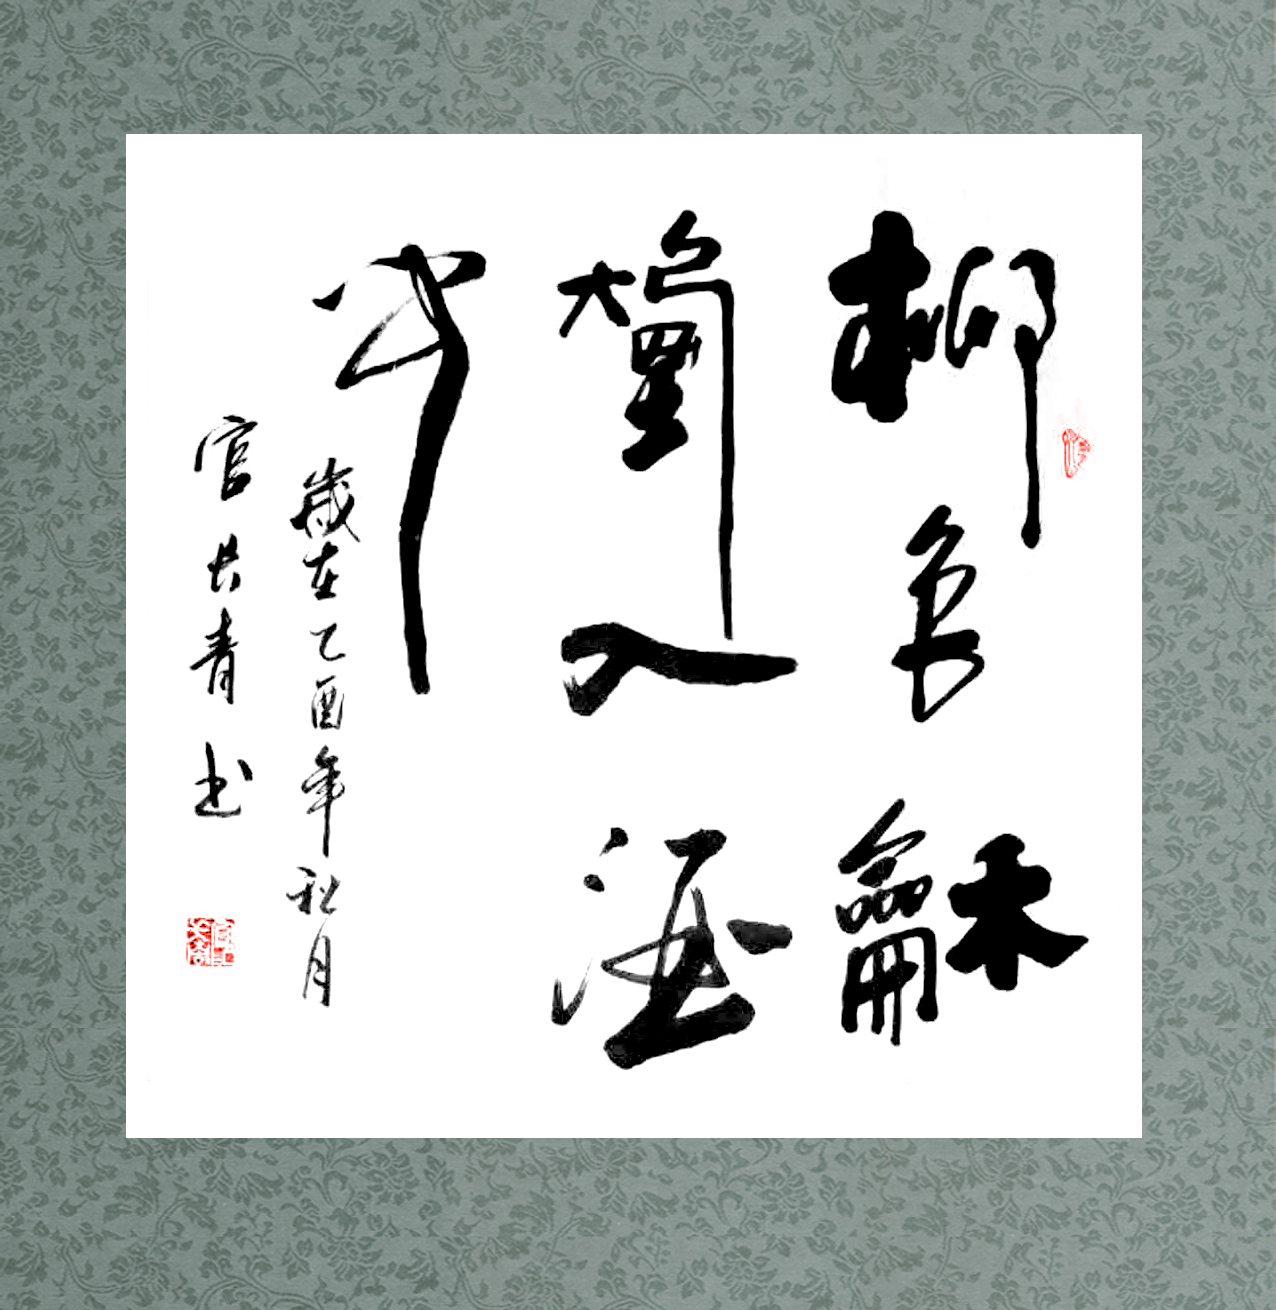 柳色龢
煙入酒
中
歲在乙酉年秋月
官共青书